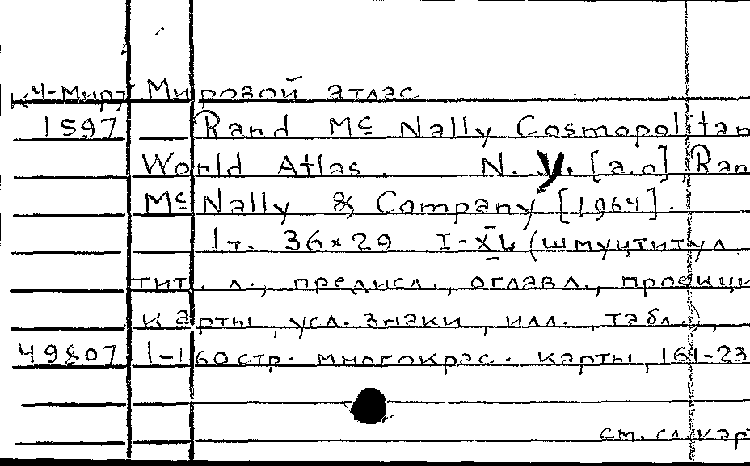 К4-Мир7 Мировой атлас
1597 Rand Mc Nally Cosmopolitan
World Atlas. N. y. [a.o] Ran
Mc Nally & Company [1964].
1т. 36×29 I-XL (шмуцтитул
тит. л., предисл., оглавл., проекци
карты, усл. знаки, илл., табл.),
49807 1-160стр. многокрас. карты, 161-23
см. сл. кар